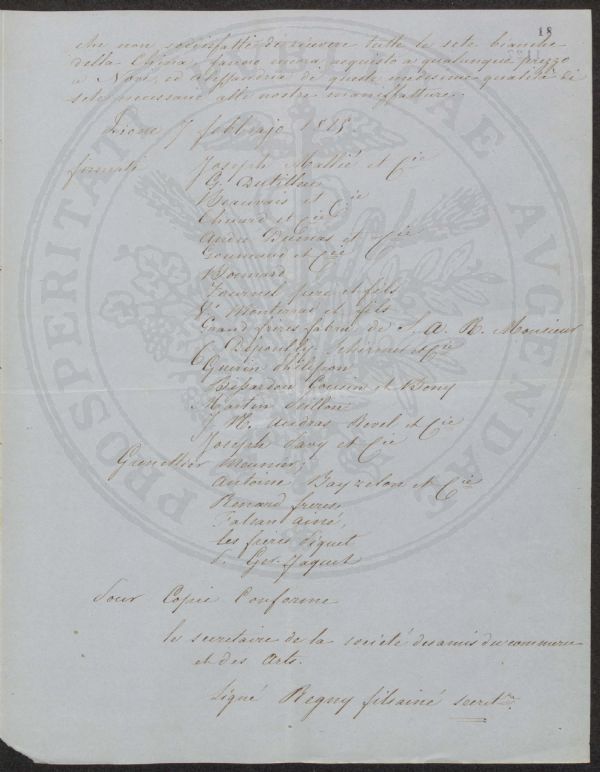 18
che non soddisfatti di ricevere tutte le sete bianche
della China, fanno ancora acquisto a qualunque prezzo
a Novi, ed Alessandria di queste medesime qualità di
sete necessarie alle nostre manifatture.
Lione 7 febbrajo 1825.
firmati Joseph Mallié et Cie
G. Dutillieu
Beauvais et Cie
Chuard et Cie
Dumas et Cie
et Cie
Bonnard
Fournel pere et fils
Monterrat et fils
Grand frères fabric. de S. A. R. Monsieur
C. Depouilly, Schirmer et Cie
Guerin Philippon
Bessason Cousin et Bony
Martin
J. M. Audras Revel et Cie
Joseph Savy et Cie
Meunier,
Antoine et Cie
Renard freres,
ainé,
les freres Siguet
Jaquet
Pour Copie Conforme
le secretaire de la société des amis du commerce
et des Arts.
Signé Regny fils ainé secret.re
PROSPERITATI PUBLICAE AUGENDAE